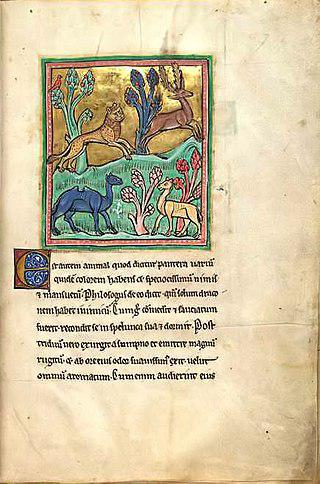 Est autem animal quod dicitur pantera variū
quidē colorem habens ⁊ speciocissimū nimis
⁊ mansuetū. Phisiologus de eo dicit qđ solum draco
nem habet inimicū. Cūq̃ comederit ⁊ sauciatum
fuerit. recondit se in spelunca sua ⁊ dormit. Post
triduū vero exurgit a sompno ⁊ emittit magnū
rugitū. ⁊ ab ore eius odor suavissimus exit. velut
omniū aromatum. Cum enim audierint eius